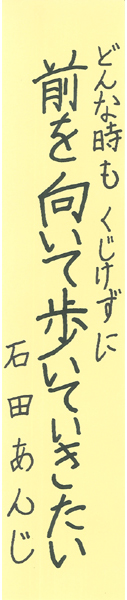 どんな時もくじけずに
前を向いて歩いていきたい
石田あんじ